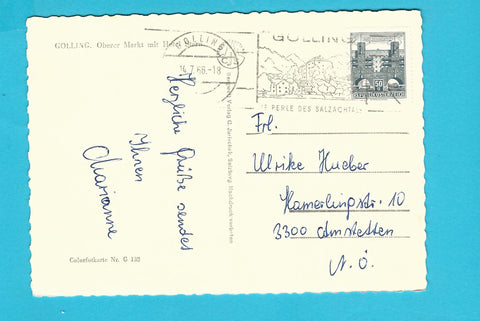 GOLLING. Oberer Markt mit
GOLLING
14.7.66.-18
GOLLING
PERLE DES SALZACHTALES
50
REPUBLIK ÖSTERREICH
Herzliche Grüße sendet
Ihnen
Marianne
Colorfotokarte Nr. G 132
Verlag C. Jurischek, Salzburg. Nachdruck verboten
Frl.
Ulrike Hueber
Hamerlingstr. 10
3300 Amstetten
N.Ö.